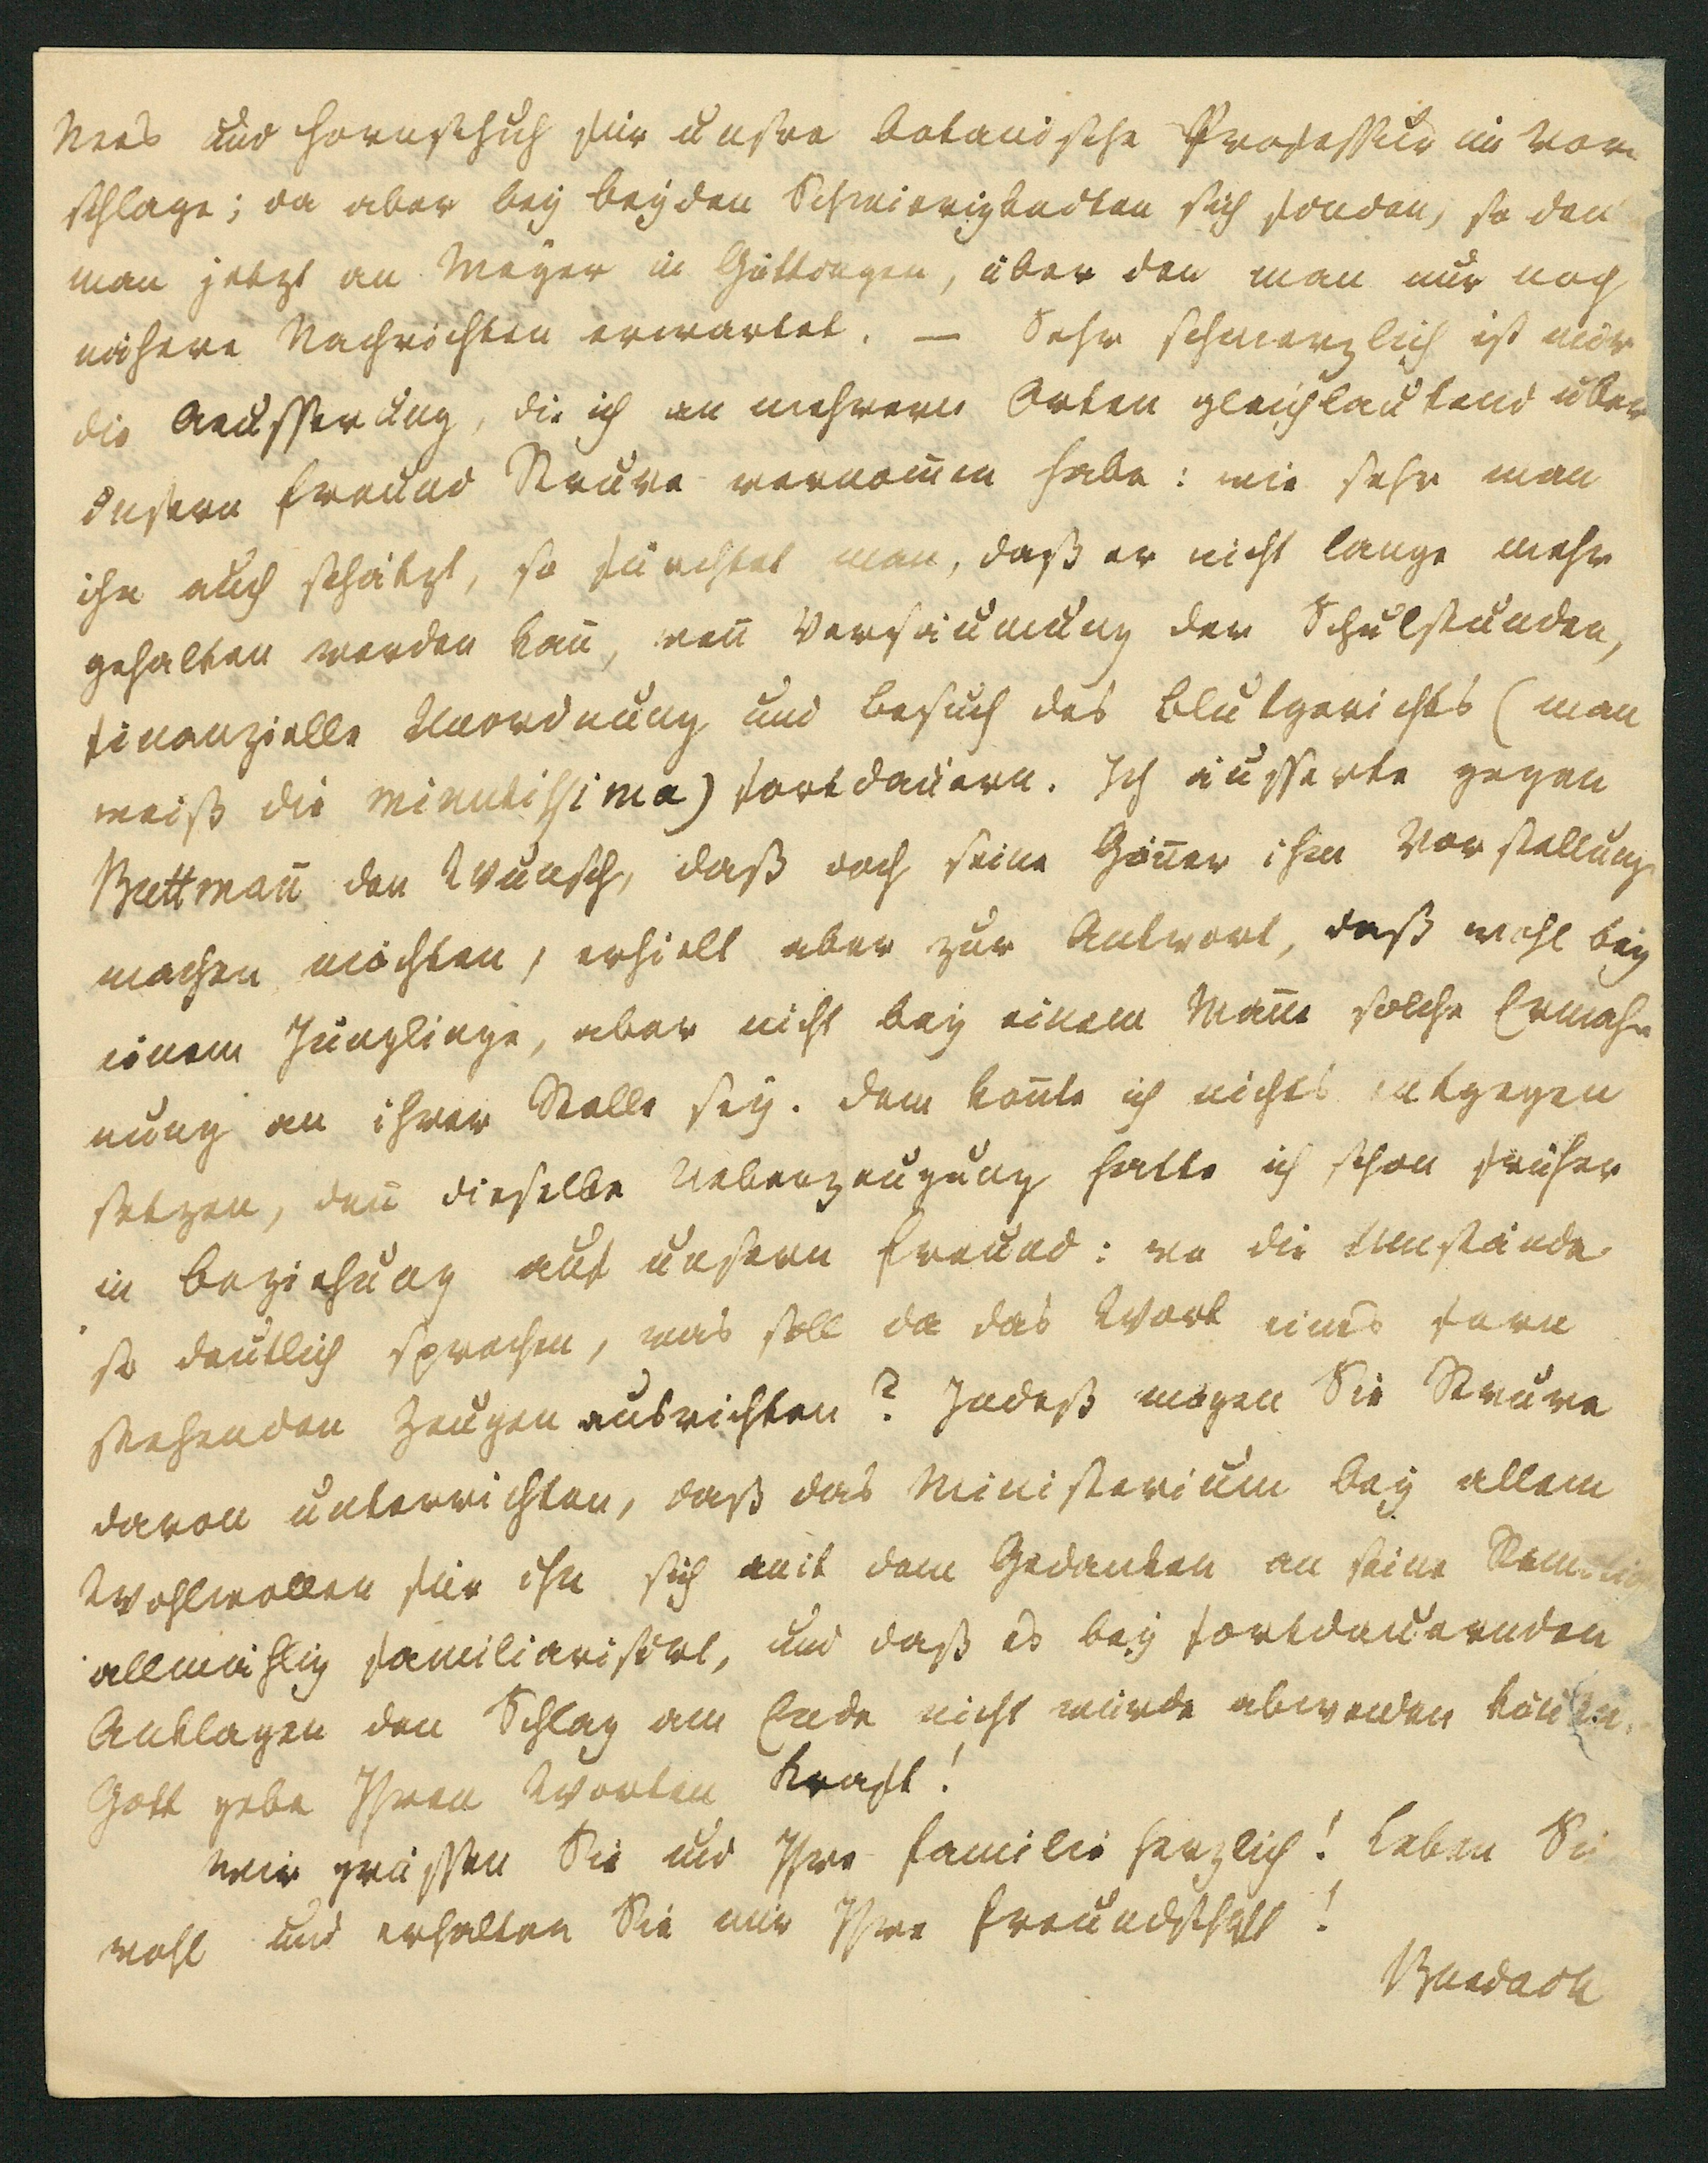 Nees und Hornschuch für unsre botanische Professur im Vor
schlage; da aber bey beyden Schwierigkeiten sich fanden, so den
man jetzt an Meyer in Göttingen, über den man nur noch
nähere Nachrichten erwartet. — Sehr schmerzlich ist mir
die Aeusserung, die ich an mehrern Orten gleichlautend über
unsern Freund Struve vernom̅en habe: wie sehr man
ihn auch schätzt, so fürchtet man, daß er nicht lange mehr
gehalten werden kan̅, wen̅ Versäumung der Schulstunden,
finanzielle Unordnung und Besuch des Blutgerichts (man
weiß die minutissima) fortdauern. Ich äusserte gegen
Buttman̅ den Wunsch, daß doch seine Gön̅er ihm Vorstellung
machen möchten, erhielt aber zur Antwort, daß wohl bey
einem Jünglinge, aber nicht bey einem Man̅e solche Ermah
nung an ihrer Stelle sey. Dem kon̅te ich nichts entgegen
setzen, den̅ dieselbe Ueberzeugung hatte ich schon früher
in Beziehung auf unsern Freund: wo die Umstände
so deutlich sprechen, was soll da das Wort eines fern
stehenden Zeugen ausrichten? Indeß mögen Sie Struve
davon unterrichten, daß das Ministerium bey allem
Wohlwollen für ihn sich mit dem Gedanken an seine Remotion
allmählig familiarisirt, und daß es bey fortdauernden
Anklagen den Schlag am Ende nicht würde abwenden kön̅en.
Gott gebe Ihren Worten Kraft!
Wir grüssen Sie und Ihre Familie herzlich! Leben Sie
wohl und erhalten Sie mir Ihre Freundschaft!
Burdach